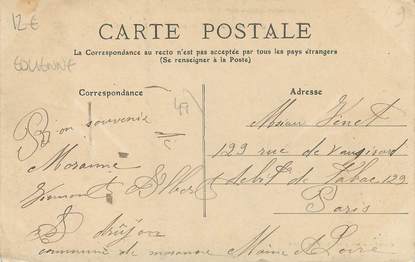 12 €
EOLIENNE
CARTE POSTALE
La Correspondance au recto n'est pas acceptée par tous les pays étrangers
(Se renseigner à la Poste)
Correspondance
Adresse
49
Bon souvenir
Moranne
Albert
commune de moranne Maine et Loire
129 rue de Vaugirard
débit de tabac 129
Paris